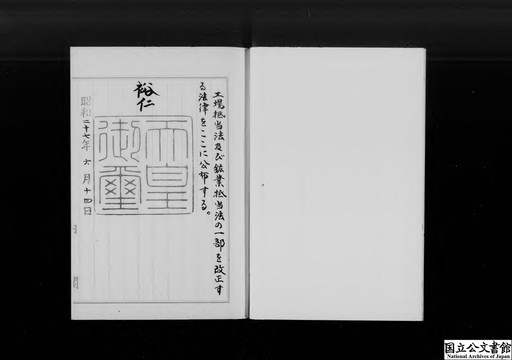 工場抵当法及び鉱業抵当法の一部を改正す
る法律をここに公布する。
裕仁
天皇
御璽
昭和二十七年六月十四日
国立公文書館
National Archives of Japan